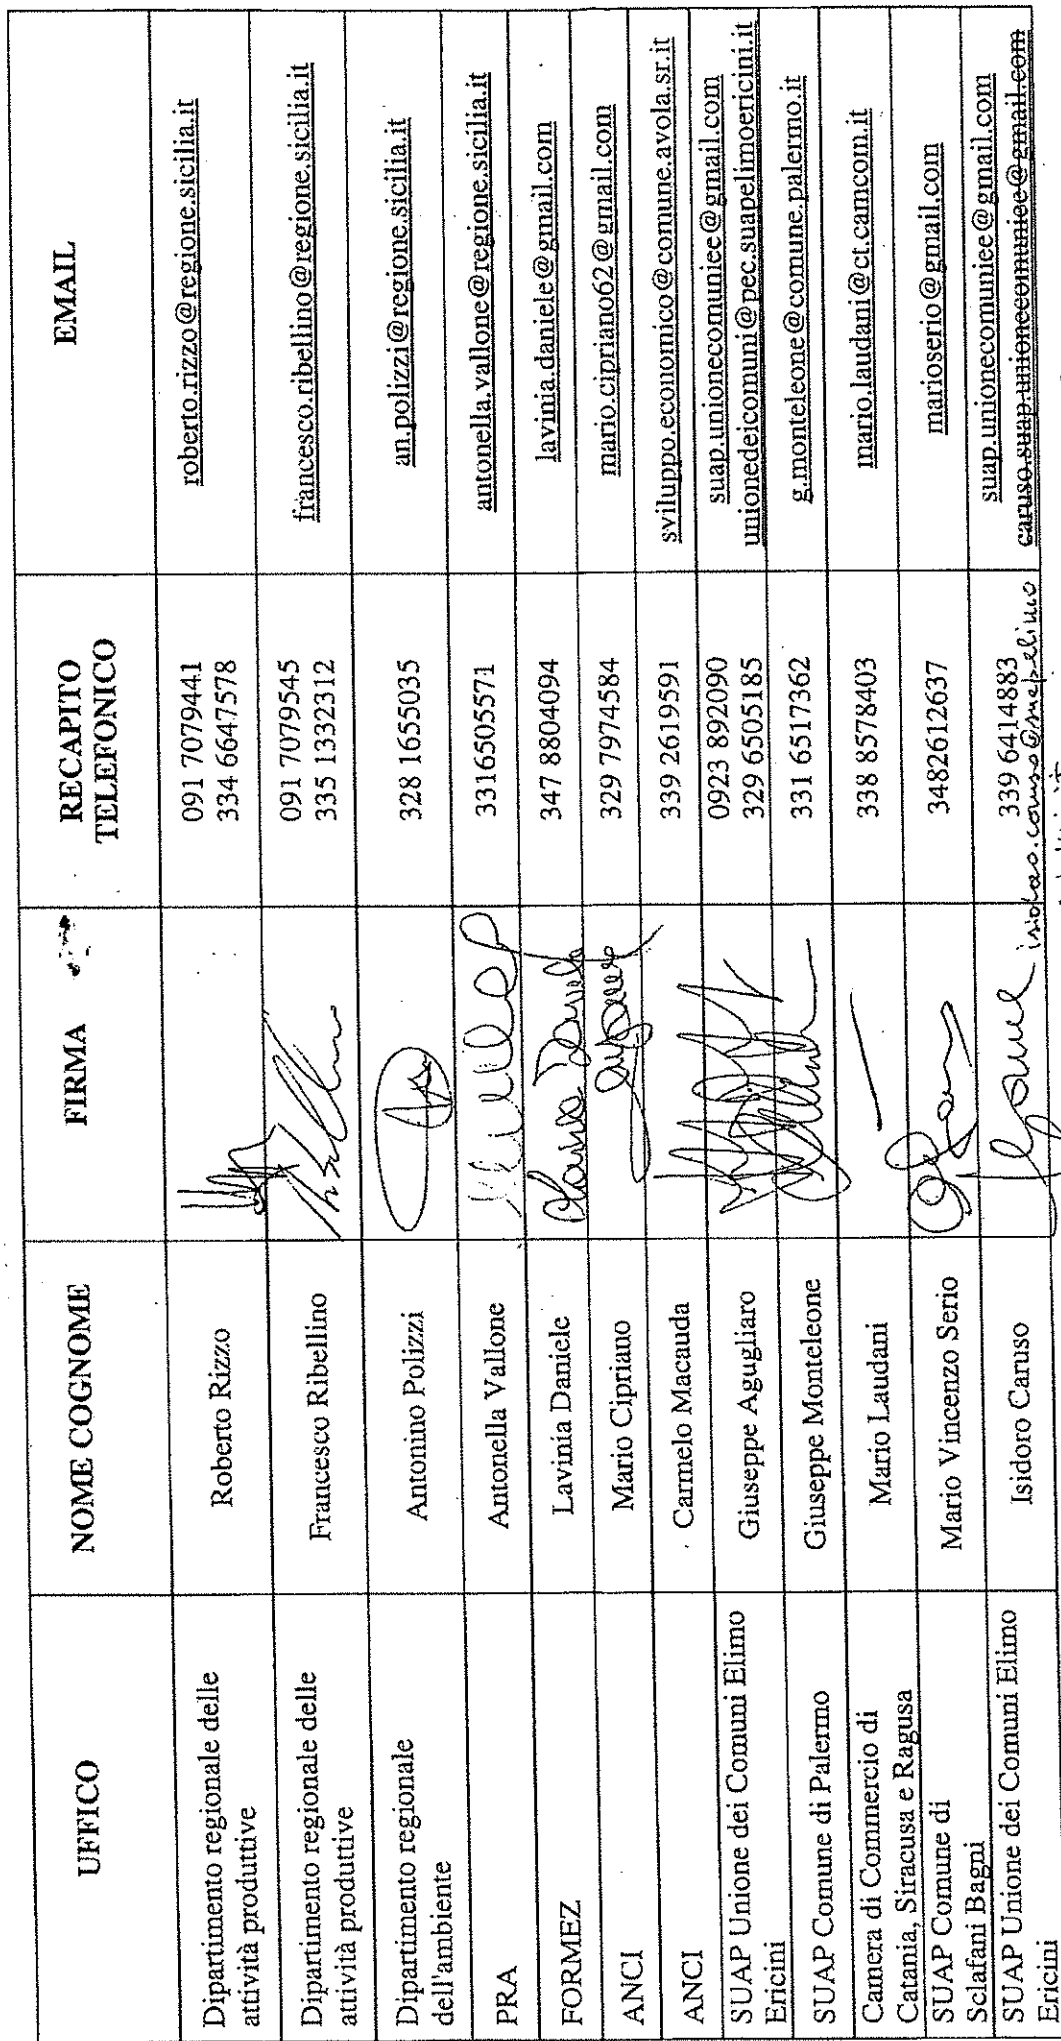 UFFICO
NOME COGNOME
FIRMA
RECAPITO
TELEFONICO
EMAIL
Dipartimento regionale delle
attività produttive
Roberto Rizzo
091 7079441
334 6647578
roberto.rizzo@regione.sicilia.it
Dipartimento regionale delle
attività produttive
Francesco Ribellino
091 7079545
335 1332312
francesco.ribellino@regione.sicilia.it
Dipartimento regionale
dell'ambiente
Antonino Polizzi
328 1655035
an.polizzi@regione.sicilia.it
PRA
Antonella Vallone
3316505571
antonella.vallone@regione.sicilia.it
FORMEZ
Lavinia Daniele
347 8804094
lavinia.daniele@gmail.com
ANCI
Mario Cipriano
329 7974584
mario.cipriano62@gmail.com
ANCI
Carmelo Macauda
339 2619591
sviluppo.economico@comune.avola.sr.it
SUAP Unione dei Comuni Elimo
Ericini
Giuseppe Agugliaro
0923 892090
329 6505185
suap.unionecomuniee@gmail.com
unionedeicomuni@pec.suapelimoericini.it
SUAP Comune di Palermo
Giuseppe Monteleone
331 6517362
g.monteleone@comune.palermo.it
Camera di Commercio di
Catania, Siracusa e Ragusa
Mario Laudani
338 8578403
mario.laudani@ct.camcom.it
SUAP Comune di
Sclafani Bagni
Mario Vincenzo Serio
3482612637
marioserio@gmail.com
SUAP Unione dei Comuni Elimo
Ericini
Isidoro Caruso
339 6414883
suap.unionecomuniee@gmail.com
caruso.suap.unionecomuniee@gmail.com